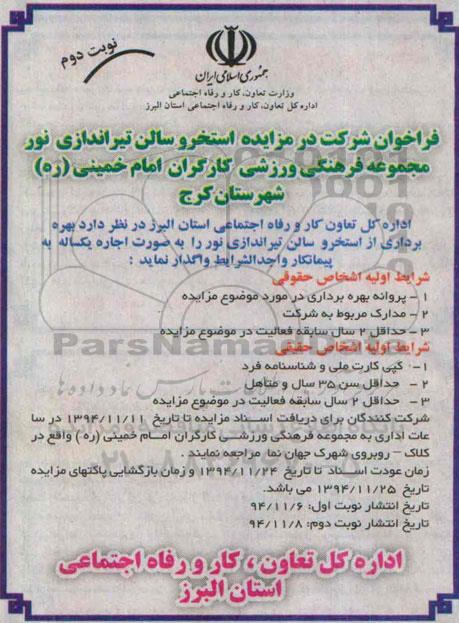 نوبت دوم
جمهوری اسلامی ایران
وزارت تعاون، کار و رفاه اجتماعی
اداره کل تعاون، کار و رفاه اجتماعی استان البرز
فراخوان شرکت در مزایده استخر و سالن تیراندازی نور
مجموعه فرهنگی ورزشی کارگران امام خمینی (ره)
شهرستان کرج
اداره کل تعاون کار و رفاه اجتماعی استان البرز در نظر دارد بهره
برداری از استخر و سالن تیراندازی نور را به صورت اجاره یکساله به
پیمانکار واجدالشرایط واگذار نماید :
شرایط اولیه اشخاص حقوقی
۱ - پروانه بهره برداری در مورد موضوع مزایده
۲ - مدارک مربوط به شرکت
۳ - حداقل ۲ سال سابقه فعالیت در موضوع مزایده
شرایط اولیه اشخاص حقیقی
۱- کپی کارت ملی و شناسنامه فرد
۲- حداقل سن ۳۵ سال و متاهل
۳- حداقل ۲ سال سابقه فعالیت در موضوع مزایده
شرکت کنندگان برای دریافت اسناد مزایده تا تاریخ ۱۳۹۴/۱۱/۱۱ در سا
عات اداری به مجموعه فرهنگی ورزشی کارگران امام خمینی (ره) واقع در
کلاک – روبروی شهرک جهان نما مراجعه نمایند .
زمان عودت اسناد تا تاریخ ۱۳۹۴/۱۱/۲۴ و زمان بازگشایی پاکتهای مزایده
تاریخ ۱۳۹۴/۱۱/۲۵ می باشد.
تاریخ انتشار نوبت اول: ۹۴/۱۱/۶
تاریخ انتشار نوبت دوم: ۹۴/۱۱/۸
اداره کل تعاون ، کار و رفاه اجتماعی
استان البرز